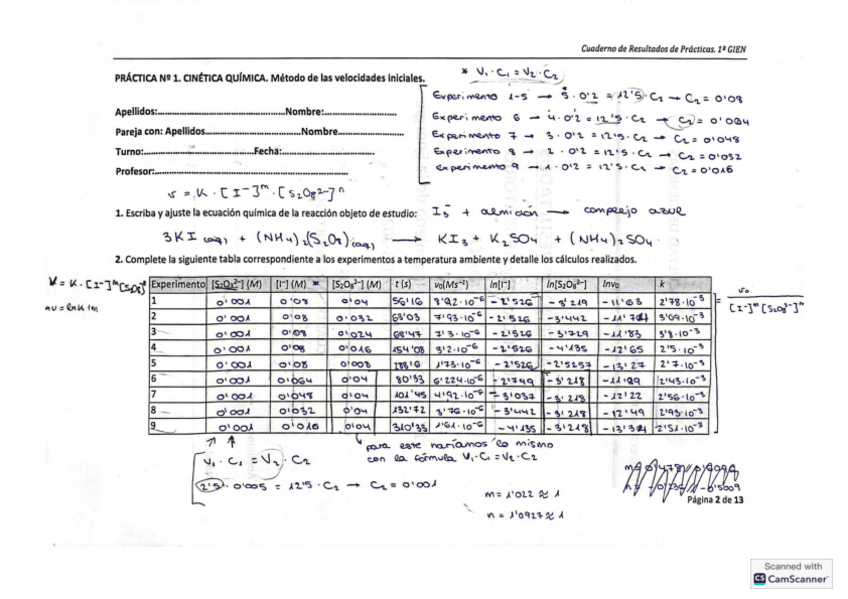 Cuaderno de Resultados de Prácticas. 1º GIEN
PRÁCTICA Nº 1. CINÉTICA QUÍMICA. Método de las velocidades iniciales.
* V₁·C₁ = V₂·C₂
Experimento 1-5 → 5·0'2 = 12'5·C₂ → C₂ = 0'08
Apellidos:..........Nombre:..........
Experimento 6 → 4·0'2 = 12'5·C₂ → C₂ = 0'064
Pareja con: Apellidos..........Nombre..........
Experimento 7 → 3·0'2 = 12'5·C₂ → C₂ = 0'048
Turno:..........Fecha:..........
Experimento 8 → 2·0'2 = 12'5·C₂ → C₂ = 0'032
Profesor:..........
Experimento 9 → 1·0'2 = 12'5·C₂ → C₂ = 0'016
v = K·[I⁻]ᵐ·[S₂O₈²⁻]ⁿ
1. Escriba y ajuste la ecuación química de la reacción objeto de estudio: I₃⁻ + almidón → complejo azul
3KI (aq) + (NH₄)₂(S₂O₈)(aq) → KI₃ + K₂SO₄ + (NH₄)₂SO₄
2. Complete la siguiente tabla correspondiente a los experimentos a temperatura ambiente y detalle los cálculos realizados.
V = K·[I⁻]ᵐ[S₂O₈]ⁿ
Experimento [S₂O₃²⁻] (M) [I⁻] (M) * [S₂O₈²⁻] (M) t (s) v₀(Ms⁻¹) ln[I⁻] ln[S₂O₈²⁻] lnv₀ k = v₀ / [I⁻]ᵐ[S₂O₈²⁻]ⁿ
1 0'001 0'08 0'04 56'16 8'92·10⁻⁶ -2'526 -3'219 -11'63 2'78·10⁻³
2 0'001 0'08 0'032 63'03 7'93·10⁻⁶ -2'526 -3'442 3'09·10⁻³
3 0'001 0'08 0'024 68'47 7'3·10⁻⁶ -2'526 -3'729 -11'83 3'8·10⁻³
4 0'001 0'08 0'016 154'08 3'2·10⁻⁶ -2'526 -4'135 -12'65 2'5·10⁻³
5 0'001 0'08 0'008 1'73·10⁻⁶ -2'526 -13'27 2'7·10⁻³
6 0'001 0'064 0'04 80'33 6'224·10⁻⁶ -2'749 -3'218 2'43·10⁻³
7 0'001 0'048 0'04 101'45 4'92·10⁻⁶ -3'037 -3'218 -12'22 2'56·10⁻³
8 0'001 0'032 0'04 132'72 3'76·10⁻⁶ -3'442 -3'218 -12'49 2'93·10⁻³
9 0'001 0'016 0'04 310'33 1'61·10⁻⁶ -4'135 -3'218 2'51·10⁻³
para este haríamos lo mismo
con la fórmula V₁·C₁ = V₂·C₂
V₁·C₁ = V₂·C₂
2'5·0'005 = 12'5·C₂ → C₂ = 0'001
m = 1'022 ≈ 1
n = 1'0927 ≈ 1
Página 2 de 13
Scanned with
CS CamScanner